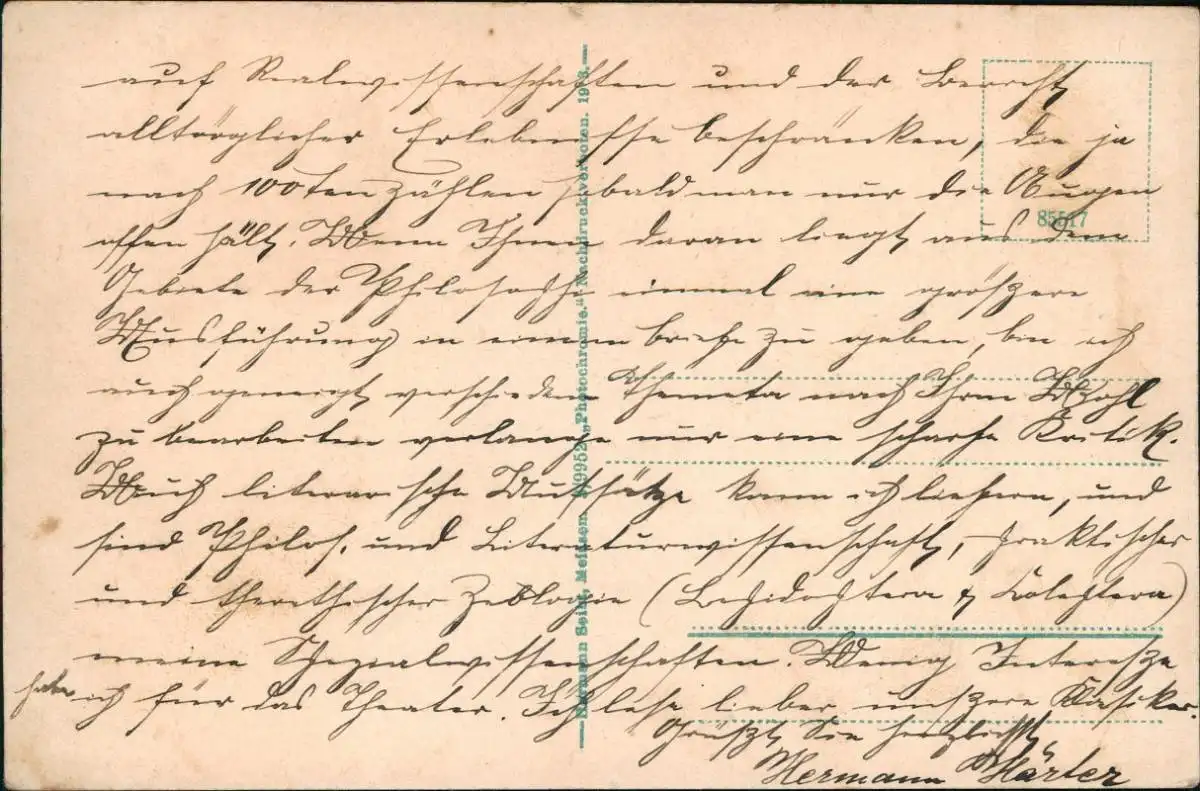 auf Realwissenschaften und der Bereich
alltäglicher Erlebnisse beschränken, die ja
nach 100ten zählen sobald man nur die Augen
offen hält. Wenn Ihnen daran liegt aus dem
Gebiete der Philosophie einmal eine größere
Ausführung in einem briefe zu geben, bin ich
auch geneigt verschiedene Themata nach Ihrer Wahl
zu bearbeiten verlange nur eine scharfe Kritik.
Auch literarische Aufsätze kann ich liefern, und
sind Philos. und Literaturwissenschaft, praktischer
und theorethischer Zoologie (Lepidoptera & Koleoptera)
meine Spezialwissenschaften. Wenig Interesse
habe ich für das Theater. Ich lese lieber unsere Klasiker.
Grüßt Sie herzlichst
Hermann Härter
Hermann Seibt, Meissen. 89952 „Photochromie.“ Nachdruck verboten.
85517